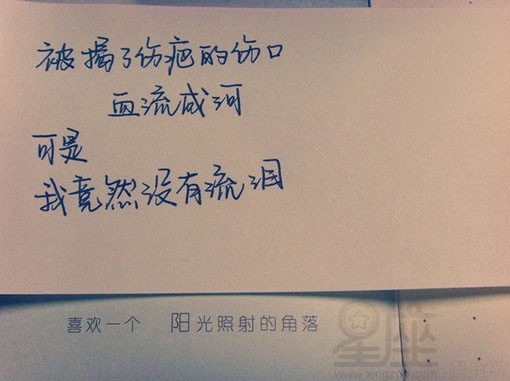 被揭了伤疤的伤口
血流成河
可是
我竟然没有流泪
喜欢一个 阳光照射的角落
星座